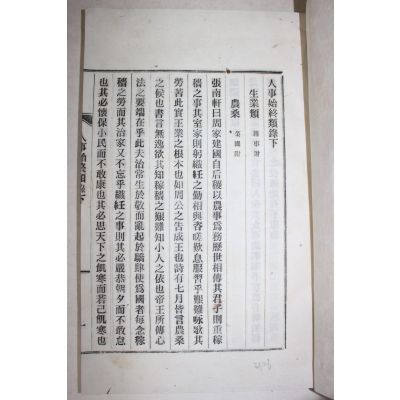 人事始終類錄下
生業類 雜事附
農桑 菜園附
張南軒曰周家建國自后稷以農事爲務歷世相傳其君子則重稼
穡之事其室家則躬織紝之勤相與咨嗟歎息服習乎艱難咏歌其
勞苦此實王業之根本也如周公之告成王也詩有七月皆言農桑
之候也書言無逸欲其知稼穡之艱難知小人之依也帝王所傳心
法之要端在乎此夫治常生於敬而亂起於驕肆使爲國者每念稼
穡之勞而其治家又不忘乎織紝之事則其必嚴恭朝夕而不敢怠
也其必懷保小民而不敢康也其必思天下之飢寒而若己飢寒也
人事始終類錄下